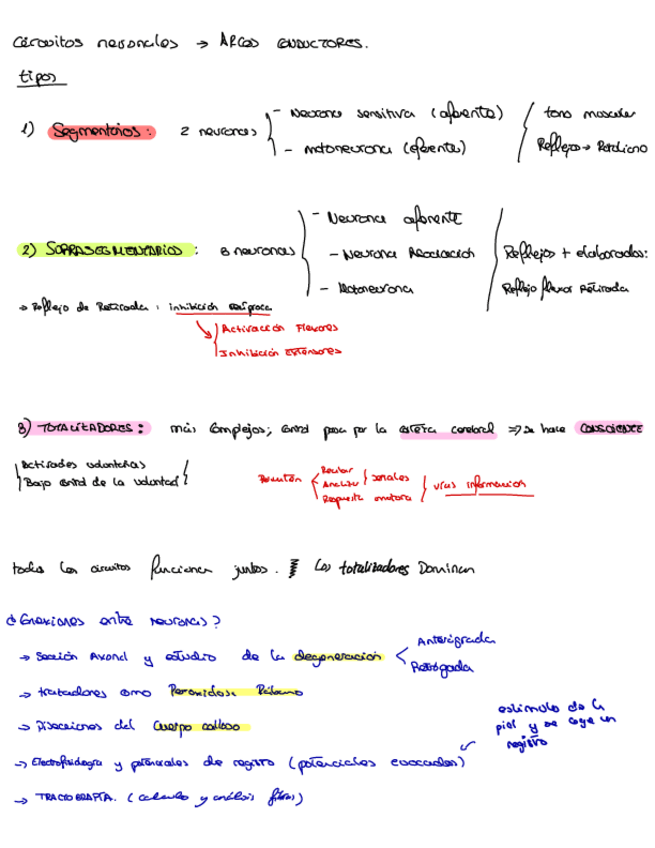 Circuitos neuronales → ARCOS CONDUCTORES.
tipos
1) Segmentarios: 2 neuronas
- Neurona sensitiva (aferente)
- motoneurona (eferente)
tono muscular
Reflejo → Rotuliano
2) SUPRASEGMENTARIOS: 3 neuronas
- Neurona aferente
- Neurona Asociación
- Motoneurona
Reflejos + elaborados:
Reflejo flexor Retirada
→ Reflejo de Retirada: inhibición recíproca
Activación Flexores
Inhibición Extensores
3) TOTALITADORES: más complejos; control pasa por la corteza cerebral ⇒ se hace CONSCIENTE
Actividades voluntarias
Bajo control de la voluntad
Recibir
Analizar
Respuesta motora
señales
vías información
todos los circuitos funcionan juntos. Los totalizadores Dominan
¿Conexiones entre neuronas?
→ Sección Axonal y estudio de la degeneración
Anterógrada
Retrógrada
→ trazadores como Peroxidasa Rábano
→ Disecciones del Cuerpo calloso
→ Electrofisiología y potenciales de registro (potenciales evocados)
estímulo de la
piel y se coge un
registro
→ TRACTOGRAFÍA. (cálculo y análisis fibras)